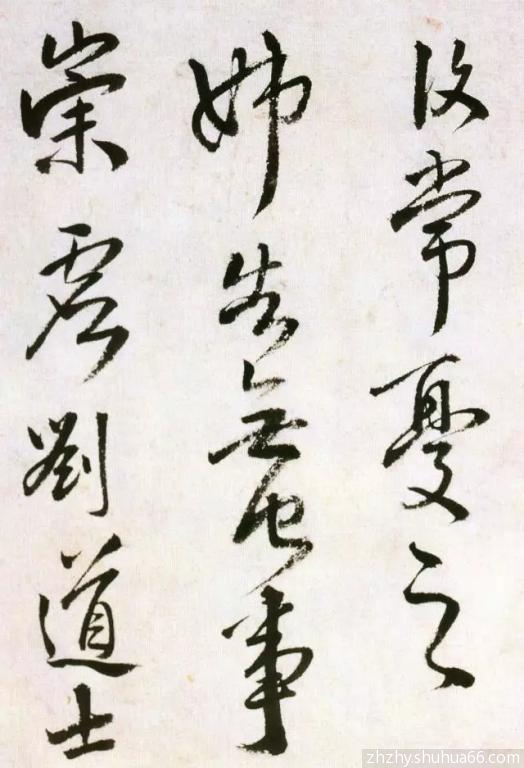 復常憂之
姊告無他事
崇虛劉道士
zhzhy.shuhua66.com